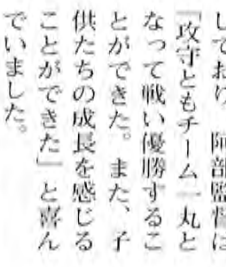 しており、阿部監督は
『攻守ともチーム一丸と
なって戦い優勝するこ
とができた。また、子
供たちの成長を感じる
ことができた」と喜ん
でいました。